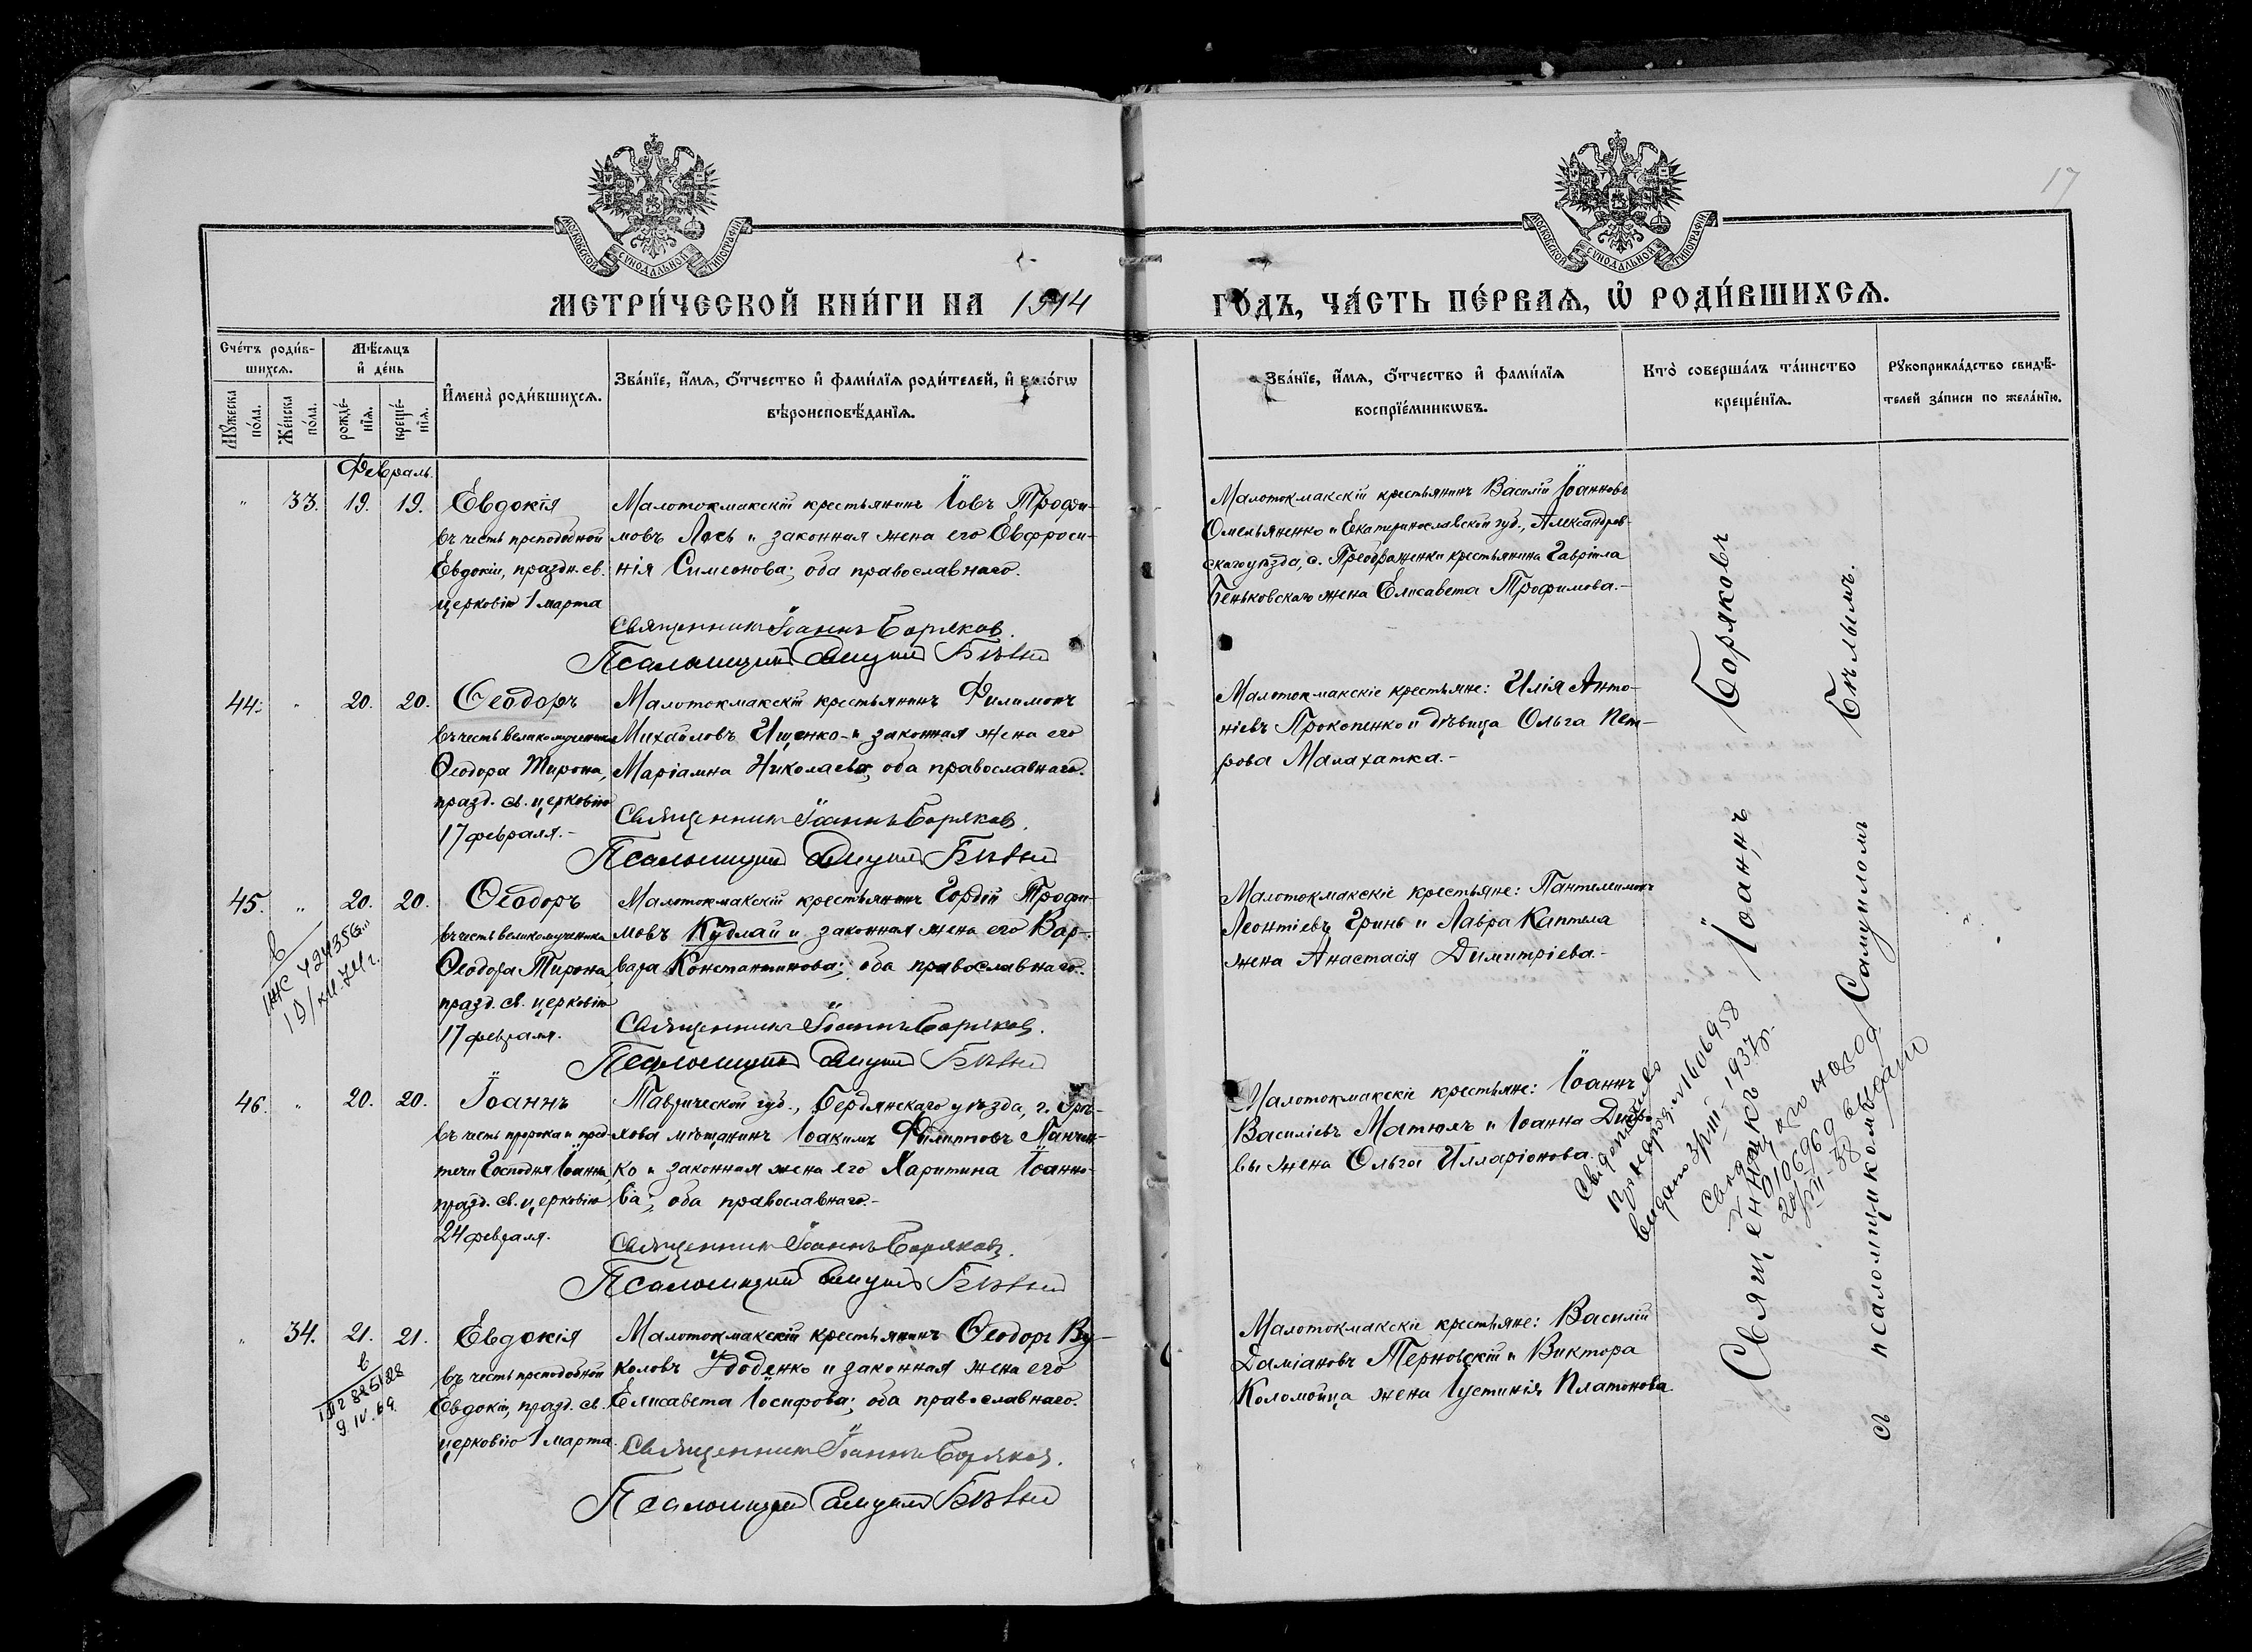 17
МОСКОВСКОЙ СѴНОДАЛЬНОЙ ТИПОГРАФІИ
МОСКОВСКОЙ СѴНОДАЛЬНОЙ ТИПОГРАФІИ
МЕТРИ́ЧЕСКОЙ КНИ́ГИ НА 1914
ГО́ДЪ, ЧА́СТЬ ПЕ́РВАѦ, Ѡ҆ РОДИ́ВШИХСѦ.
Сче́тъ роди́в-
шихсѧ.
Мѣ́сѧцъ
и҆ де́нь
Мꙋ́жеска
по́ла.
Же́нска
по́ла.
рожде́-
нїѧ.
креще́-
нїѧ.
И҆мена̀ роди́вшихсѧ.
Зва́нїе, и҆́мѧ, ѻ҆́тчество и҆ фами́лїѧ роди́телей, и҆ како́гѡ
вѣроисповѣ́данїѧ.
Зва́нїе, и҆́мѧ, ѻ҆́тчество и҆ фами́лїѧ
воспрїе́мникѡвъ.
Кто̀ соверша́лъ та́инство
креще́нїѧ.
Рꙋкоприкла́дство свидѣ́-
телей за́писи по жела́нїю.
Февраль.
" 33. 19. 19.
Евдокія
въ честь преподобной
Евдокіи, праздн. св.
церковію 1 марта
Малотокмакскій крестьянинъ Іовъ Трофи-
мовъ Лось и законная жена его Евфроси-
нія Симеонова; оба православнаго.
Священникъ Іоаннъ Боряковъ.
Псаломщикъ Самуилъ Бѣлый
Малотокмакскій крестьянинъ Василій Іоанновъ
Омельяненко и Екатеринославской губ., Александров-
скаго уѣзда, с. Преображенки крестьянина Гавріила
Беньковскаго жена Елисавета Трофимова.-
44. " 20. 20.
Ѳеодоръ
въ честь великомученика
Ѳеодора Тирона,
празд. св. церковію
17 февраля.-
Малотокмакскій крестьянинъ Филимонъ
Михайловъ Ищенко и законная жена его
Маріамна Николаева; оба православнаго.
Священникъ Іоаннъ Боряковъ.
Псаломщикъ Самуилъ Бѣлый
Малотокмакскіе крестьяне: Илія Анто-
ніевъ Прокопенко и дѣвица Ольга Пет-
рова Малахатка.-
45. " 20. 20.
Ѳеодоръ
въ честь великомученика
Ѳеодора Тирона,
празд. св. церковію
17 февраля.
Малотокмакскій крестьянинъ Гордій Трофи-
мовъ Кудлай и законная жена его Вар-
вара Константинова; оба православнаго.
Священникъ Іоаннъ Боряковъ.
Псаломщикъ Самуилъ Бѣлый
Малотокмакскіе крестьяне: Пантелеимонъ
Леонтіевъ Гринь и Лавра Каптела
жена Анастасія Димитріева.-
46. " 20. 20.
Іоаннъ
въ честь пророка и пред-
течи Господня Іоанна
празд. св. церковію
24 февраля.
Таврической губ., Бердянскаго уѣзда, г. Орѣ-
хова мѣщанинъ Іоакимъ Филипповъ Панчен-
ко и законная жена его Харитина Іоанно-
ва; оба православнаго.-
Священникъ Іоаннъ Боряковъ.
Псаломщикъ Самуилъ Бѣлый
Малотокмакскіе крестьяне: Іоаннъ
Василіевъ Матюлъ и Іоанна
жена Ольга Илларіонова.
" 34. 21. 21.
9.IV.69
Евдокія
въ честь преподобной
Евдокіи, празд. св.
церковію 1 марта.
Малотокмакскій крестьянинъ Ѳеодоръ Ву-
коловъ Удоденко и законная жена его
Елисавета Іосифова; оба православнаго.
Священникъ Іоаннъ Боряковъ.
Псаломщикъ Самуилъ Бѣлый
Малотокмакскіе крестьяне: Василій
Даміановъ Терновскій и Виктора
Коломойца жена Іустинія Платонова
Священникъ Іоаннъ Боряковъ
съ псаломщикомъ Самуиломъ Бѣлымъ.